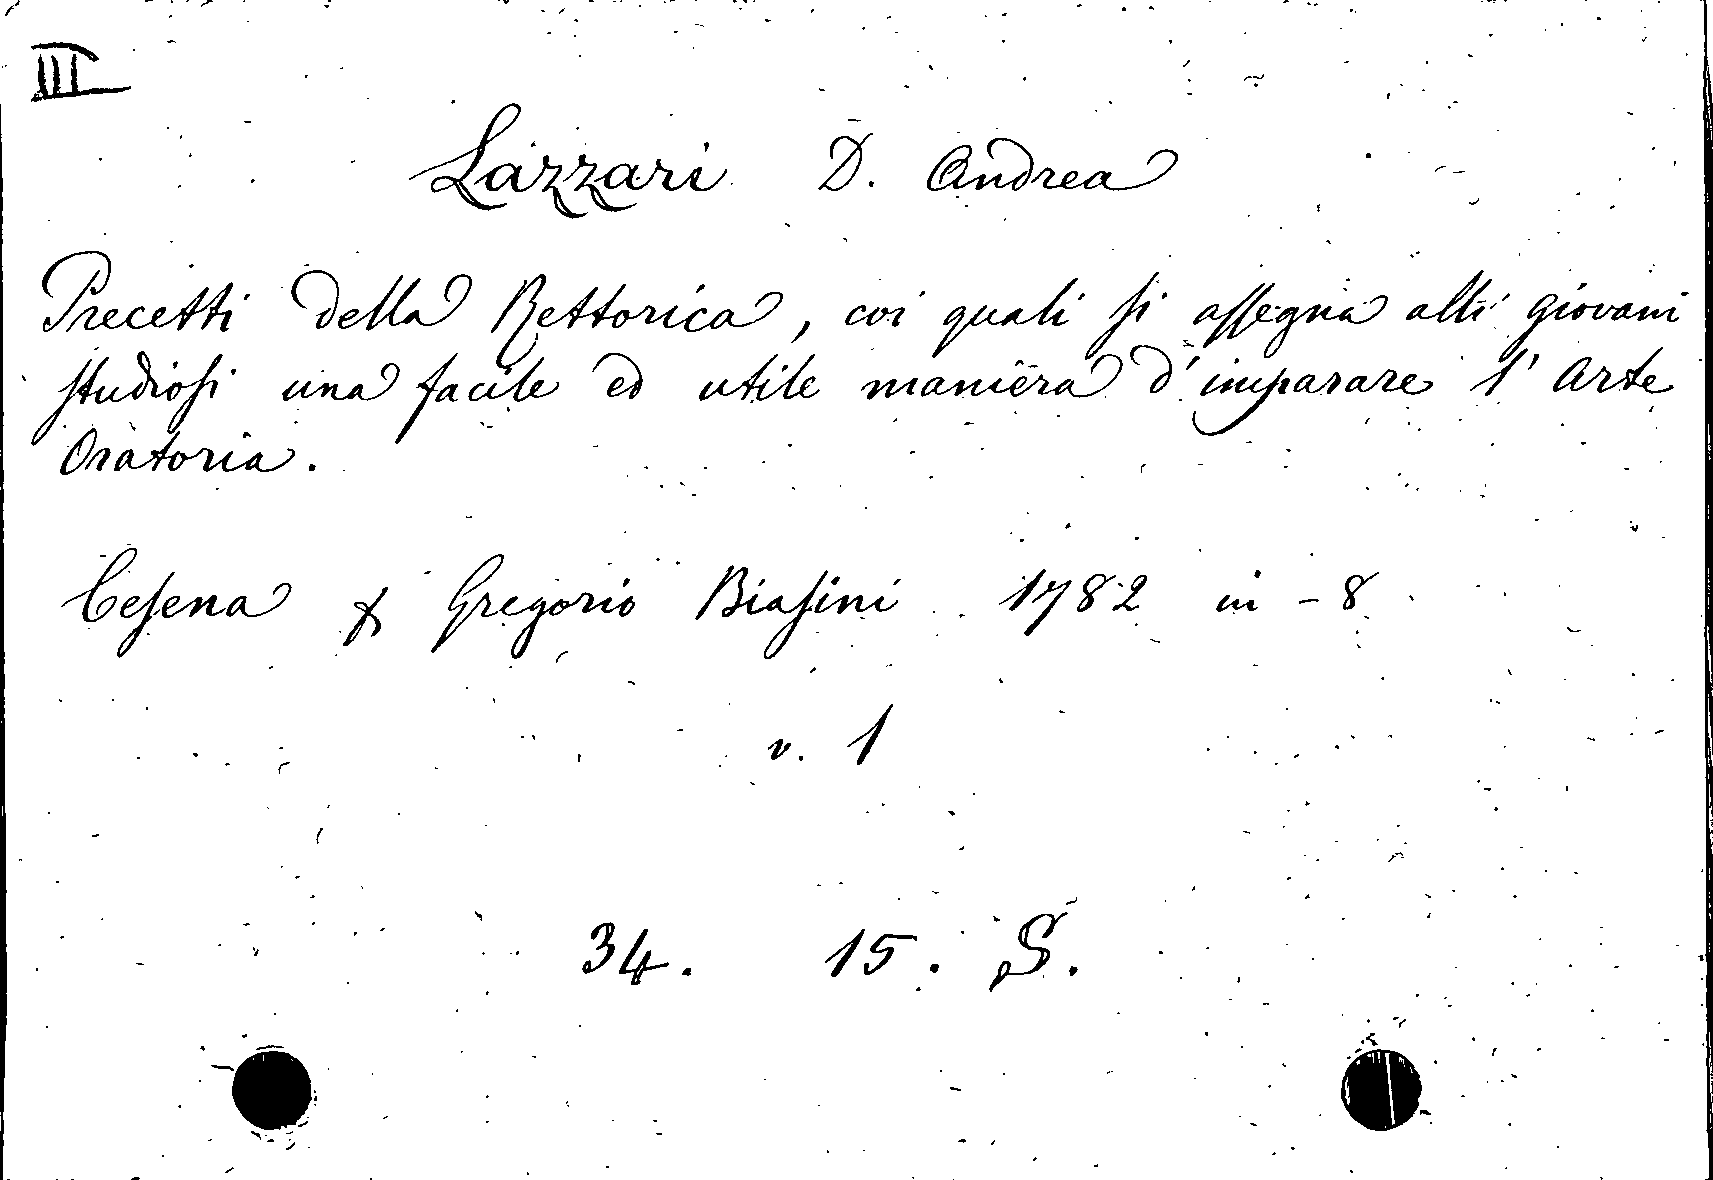 III
Lazzari D. Andrea
Precetti della Rettorica, coi quali si assegna alli giovani
studiosi una facile ed utile maniera d'imparare l'Arte
Oratoria.
Cesena Gregorio Biasini 1782 in-8
v. 1
34. 15. S.